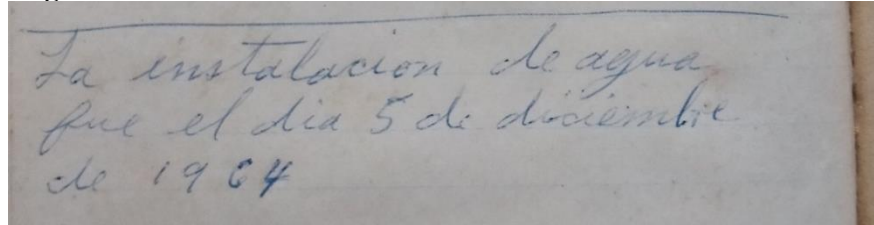 La instalacion de agua
fue el dia 5 de diciembre
de 1964